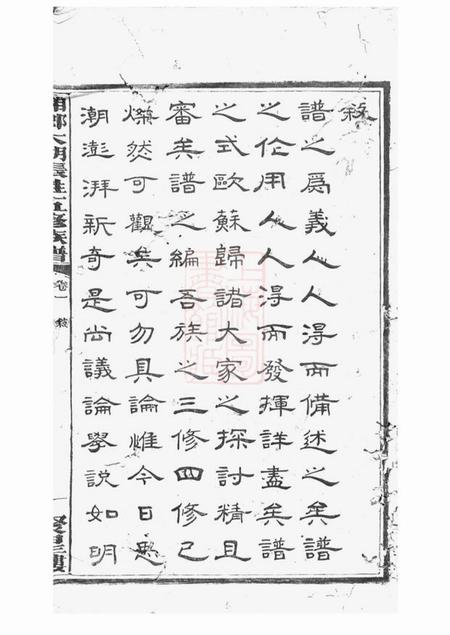 敘
譜之為義人人得而備述之矣譜
之作用人人得而發揮詳盡矣譜
之式歐蘇歸諸大家之探討精且
審矣譜之編吾族之三修四修已
燦然可觀矣可勿具論惟今日思
潮澎湃新奇是尚議論學說如明
大湖張姓五修族譜
卷一
敘
一